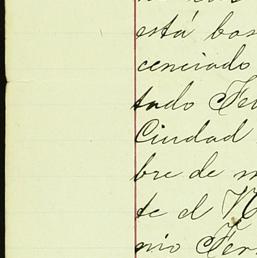 está bas
cenciado
tado Fer
Ciudad
bre de m
te el N
nio Fer